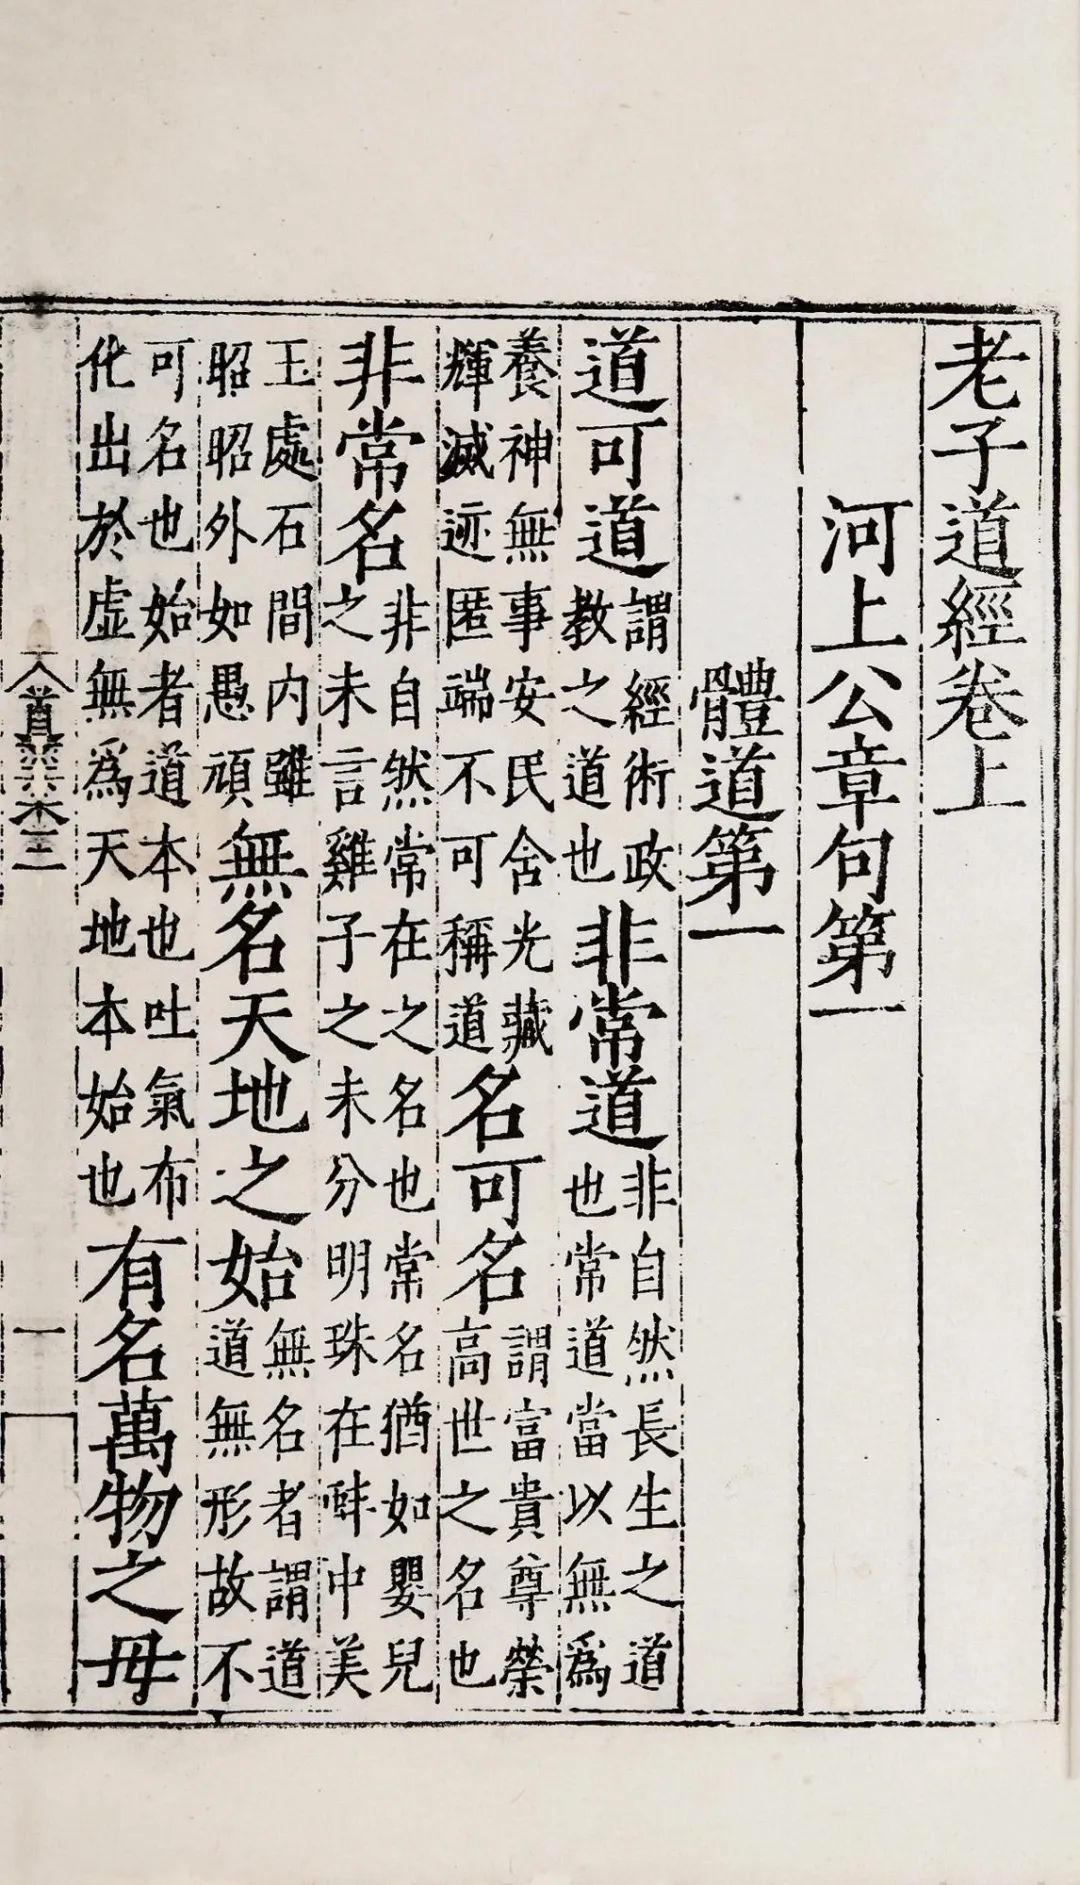 老子道經卷上
河上公章句第一
體道第一
道可道謂經術政教之道也非常道非自然長生之道也常道當以無爲
養神無事安民含光藏輝滅迹匿端不可稱道名可名謂富貴尊榮高世之名也
非常名非自然常在之名也常名猶如嬰兒之未言雞子之未分明珠在蚌中美
玉處石間内雖昭昭外如愚頑無名天地之始無名者謂道道無形故不
可名也始者道本也吐氣布化出於虛無爲天地本始也有名萬物之母
一